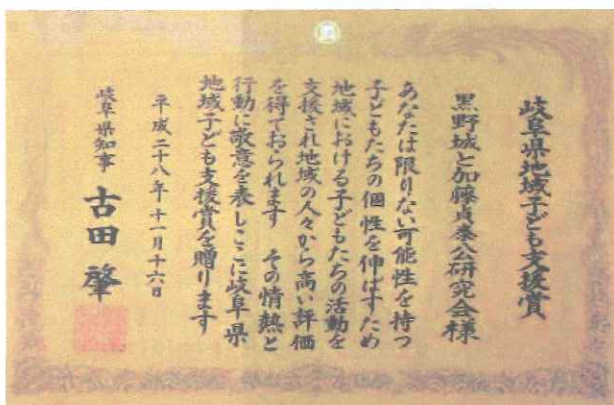 岐阜県地域子ども支援賞
黒野城と加藤貞泰公研究会様
あなたは限りない可能性を持つ
子どもたちの個性を伸ばすため
地域における子どもたちの活動を
支援され地域の人々から高い評価
を得ておられます その情熱と
行動に敬意を表しここに岐阜県
地域子ども支援賞を贈ります
平成二十八年十一月十六日
岐阜県知事 古田 肇